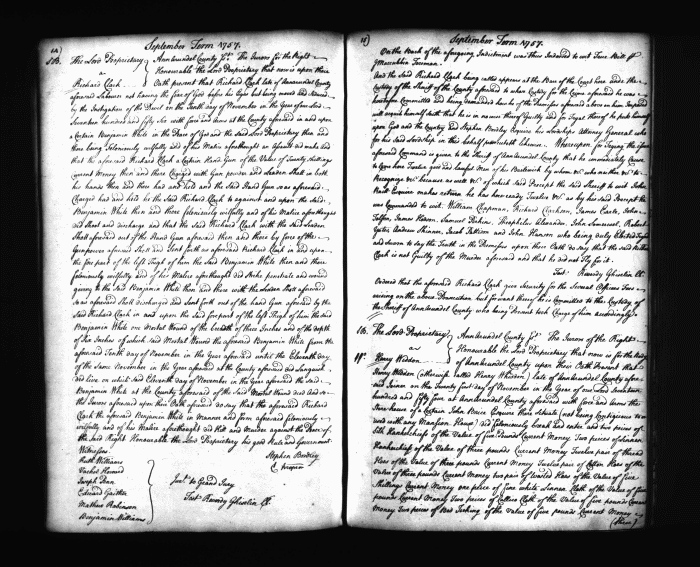 September Term 1757.
The Lord Proprietary
a
Richard Clark
Annarundel County Ss. The Jurors for the Right
Honourable the Lord Proprietary that now is upon their
Oath present that Richard Clark late of Annarundel County
aforesaid Labourer not having the fear of God before his Eyes but being moved and Seduced
by the Instigation of the Devil on the Tenth day of November in the Year of our Lord
Seventeen hundred and fifty six with force and Arms at the County aforesaid in and upon
a Certain Benjamin White in the Peace of God and the said Lord Proprietary then and
there being feloniously wilfully and of his Malice aforethought an Assault did make and
that the aforesaid Richard Clark a Certain Hand Gun of the Value of Twenty Shillings
Current Money then and there Charged with Gun powder and Leaden Shott in both
his hands then and there had and held and the said Hand Gun so as aforesaid
Charged had and held he the said Richard Clark to against and upon the said
Benjamin White then and there feloniously wilfully and of his Malice aforethought
did Shoot and discharge and that the said Richard Clark with the said Leaden
Shott aforesaid out of the Hand Gun aforesaid then and there by force of the
Gunpowder aforesaid Shott and Sent forth as aforesaid Richard Clark in and upon
the fore part of the left Thigh of him the said Benjamin White then and there
feloniously wilfully and of his Malice aforethought did Strike penetrate and wound
giving to the said Benjamin White then and there with the Leaden Shott aforesaid
so as aforesaid Shott discharged and Sent forth out of the hand Gun aforesaid by the
said Richard Clark in and upon the said forepart of the left Thigh of him the said
Benjamin White one Mortal Wound of the breadth of three Inches and of the depth
of Six Inches of which said Mortal Wound the aforesaid Benjamin White from the
aforesaid Tenth day of November in the Year aforesaid until the Eleventh day
of the same November in the Year aforesaid at the County aforesaid did Languish
and live on which said Eleventh day of November in the Year aforesaid the said
Benjamin White at the County aforesaid of the said Mortal Wound died And so
the Jurors aforesaid upon their Oath aforesaid do say that the aforesaid Richard
Clark the aforesaid Benjamin White in Manner and form aforesaid feloniously
wilfully and of his Malice aforethought did Kill and Murder against the Peace of
the said Right Honourable the Lord Proprietary his good Rule and Government
Stephen Bordley
Witnesses
Ruth Williams
Vachel Howard
Joseph Penn
Edward Gaither
Mathew Robinson
Benjamin Williams
Jurt. to Grand Jury
Test Reverdy Ghiselin Cl.
September Term 1757.
On the Back of the aforegoing Indictment was thus Indorsed to wit True Bill
Maccubbin Foreman.
And the said Richard Clark being called appears at the Bar of the Court here under the
Custody of the Sheriff of the County aforesaid to whose Custody for the Cause aforesaid he was
heretofore Committed and being demanded how he of the Premisses aforesaid above on him Imposed
will acquit himself saith that he is in no wise thereof Guilty and for Tryal thereof he puts himself
upon God and the Country And Stephen Bordley Esquire his Lordships Attorney General who
for his said Lordship in this behalf prosecuteth likewise. Whereupon for Trying the Issue
aforesaid Command is given to the Sheriff of Annarundel County that he immediately Cause
to Come here Twelve good and lawful Men of his Bailiwick by whom &c who neither &c to
Recognize &c because as well &c of which said Precept the said Sheriff to wit John
Raitt Esquire makes return he has here ready Twelve &c as by his said Precept he
was Commanded to wit. William Chapman, Richard Clarkson, James Carter, John
Jolfin, James Hanson, Samuel Perkins, Theophilus Alexander, John Sumervert, Robert
Gates, Andrew Skinner, Jacob Pattison and John Hanson who being duly Elected Tryed
and Sworn to say the Truth in the Premisses upon their Oath do say that the said Richard
Clark is not Guilty of the Murder aforesaid and that he did not Fly for it.
Test: Reverdy Ghiselin Cl.
Ordered that the aforesaid Richard Clark give Security for the Several Officers Fees
arising on the above Prosecution but for want thereof he is Committed to the Custody of
the Sheriff of Annarundel County who being Present took Charge of him accordingly.
16. The Lord Proprietary
a
Henry Wedon
Annarundel County Ss. The Jurors of the Right
Honourable the Lord Proprietary that now is for the Body
of Annarundel County upon their Oath Present that
Henry Wedon (otherwise called Henry Whedon) late of Annarundel County afore
said Joiner on the Twenty first day of November in the Year of our Lord Seventeen
hundred and fifty five at Annarundel County aforesaid with force and Arms the
Storehouse of a Certain John Brice Esquire there Situate (not being Contiguous to or
used with any Mansion House) did feloniously break and enter and two pieces of
Silk Handkerchiefs of the Value of five pounds Current Money Two pieces of Linnen
Handkerchiefs of the Value of three pounds Current Money Twelve pair of thread
Hose of the Value of three pounds Current Money Twelve pair of Cotton Hose of the
Value of three pounds Current Money two pair of Worsted Hose of the Value of five
Shillings Current Money one piece of fine white Linnen Cloth of the Value of five
pounds Current Money Two pieces of Callico Cloth of the Value of five pounds Current
Money Two pieces of Bed Ticking of the Value of five pounds Current Money